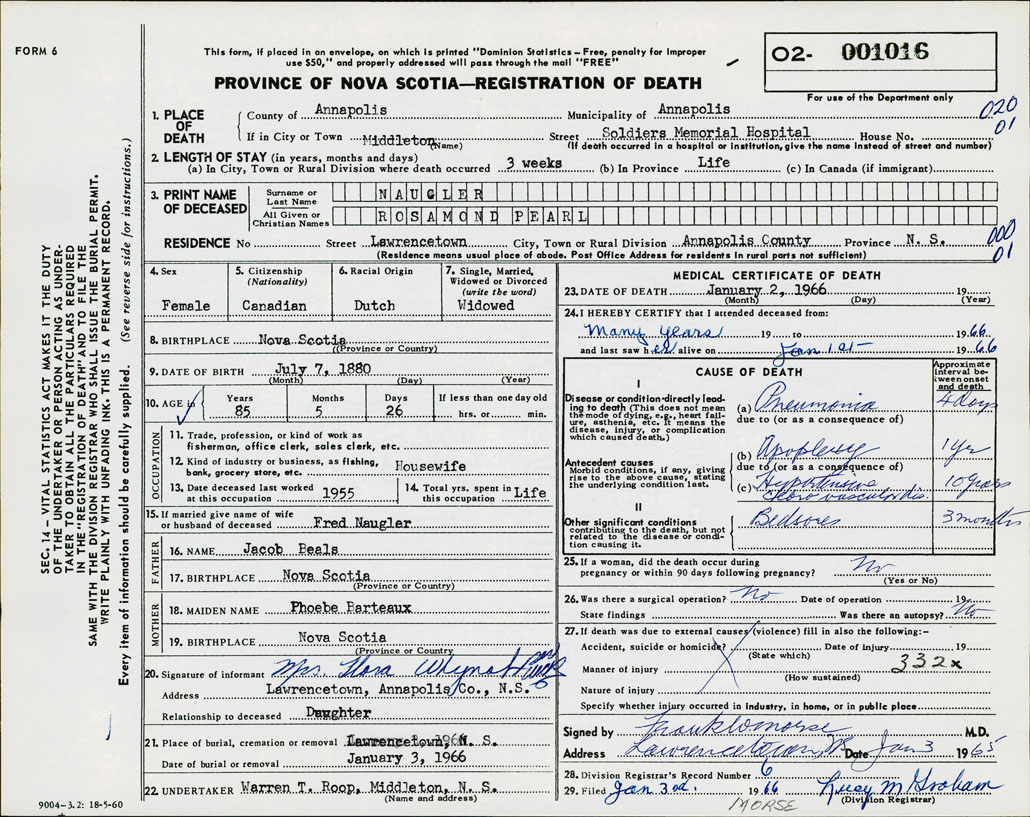 FORM 6
This form, if placed in an envelope, on which is printed "Dominion Statistics – Free, penalty for improper
use $50," and properly addressed will pass through the mail "FREE"
02- 001016
For use of the Department only
PROVINCE OF NOVA SCOTIA—REGISTRATION OF DEATH
020
01
1. PLACE OF DEATH
County of Annapolis Municipality of Annapolis
If in City or Town Middleton (Name) Street Soldiers Memorial Hospital House No.
(If death occurred in a hospital or institution, give the name instead of street and number)
2. LENGTH OF STAY (in years, months and days)
(a) In City, Town or Rural Division where death occurred 3 weeks (b) In Province Life (c) In Canada (if immigrant)
3. PRINT NAME OF DECEASED
Surname or Last Name NAUGLER
All Given or Christian Names ROSAMOND PEARL
RESIDENCE No Street Lawrencetown City, Town or Rural Division Annapolis County Province N. S.
000
01
(Residence means usual place of abode. Post Office Address for residents in rural parts not sufficient)
4. Sex
Female
5. Citizenship
(Nationality)
Canadian
6. Racial Origin
Dutch
7. Single, Married,
Widowed or Divorced
(write the word)
Widowed
8. BIRTHPLACE Nova Scotia
(Province or Country)
9. DATE OF BIRTH July 7, 1880
(Month) (Day) (Year)
10. AGE in Years 85 Months 5 Days 26 If less than one day old hrs. or min.
OCCUPATION
11. Trade, profession, or kind of work as
fisherman, office clerk, sales clerk, etc.
12. Kind of industry or business, as fishing,
bank, grocery store, etc. Housewife
13. Date deceased last worked
at this occupation 1955
14. Total yrs. spent in
this occupation Life
15. If married give name of wife
or husband of deceased Fred Naugler
FATHER
16. NAME Jacob Beals
17. BIRTHPLACE Nova Scotia
(Province or Country)
MOTHER
18. MAIDEN NAME Phoebe Barteaux
19. BIRTHPLACE Nova Scotia
(Province or Country)
20. Signature of informant Mrs Flora Whynot
Address Lawrencetown, Annapolis Co., N.S.
Relationship to deceased Daughter
21. Place of burial, cremation or removal Lawrencetown, N. S.
Date of burial or removal January 3, 1966
22. UNDERTAKER Warren T. Roop, Middleton, N. S.
(Name and address)
MEDICAL CERTIFICATE OF DEATH
23. DATE OF DEATH January 2, 1966
(Month) (Day) (Year)
24. I HEREBY CERTIFY that I attended deceased from:
Many years 19 to 1966
and last saw her alive on Jan 1st 1966
CAUSE OF DEATH
Approximate
interval be-
tween onset
and death
I
Disease or condition-directly lead-
ing to death (This does not mean
the mode of dying, e.g., heart fail-
ure, asthenia, etc. It means the
disease, injury, or complication
which caused death.)
(a) Pneumonia 4 days
due to (or as a consequence of)
(b) Apoplexy 1 yr
Antecedent causes
Morbid conditions, if any, giving
rise to the above cause, stating
the underlying condition last.
due to (or as a consequence of)
(c) Hypertensive 10 years
vascular dis.
II
Other significant conditions
contributing to the death, but not
related to the disease or condi-
tion causing it.
Bedsores 3 months
25. If a woman, did the death occur during
pregnancy or within 90 days following pregnancy? No
(Yes or No)
26. Was there a surgical operation? No Date of operation 19
State findings Was there an autopsy? No
27. If death was due to external causes (violence) fill in also the following:–
Accident, suicide or homicide? Date of injury 19
(State which)
Manner of injury 332x
(How sustained)
Nature of injury
Specify whether injury occurred in industry, in home, or in public place
Signed by Frank W Morse M.D.
Address Lawrencetown, NS Date Jan 3 1965
28. Division Registrar's Record Number 6
29. Filed Jan 3rd. 1966 Lucy M Graham
(Division Registrar)
MORSE
SEC. 14 – VITAL STATISTICS ACT MAKES IT THE DUTY
OF THE UNDERTAKER OR PERSON ACTING AS UNDER-
TAKER TO OBTAIN ALL THE PARTICULARS REQUIRED
IN THE "REGISTRATION OF DEATH" AND TO FILE THE
SAME WITH THE DIVISION REGISTRAR WHO SHALL ISSUE THE BURIAL PERMIT.
WRITE PLAINLY WITH UNFADING INK. THIS IS A PERMANENT RECORD.
Every item of information should be carefully supplied. (See reverse side for instructions.)
9004–3.2: 18-5-60